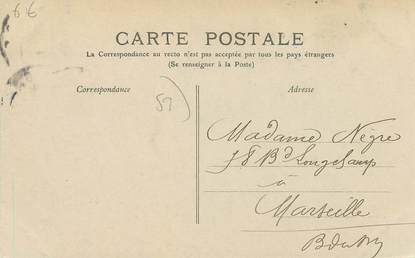 66
CARTE POSTALE
La Correspondance au recto n'est pas acceptée par tous les pays étrangers
(Se renseigner à la Poste)
Correspondance
Adresse
59
Madame Nègre
58 Bd Longchamp
à
Marseille
B du Rh